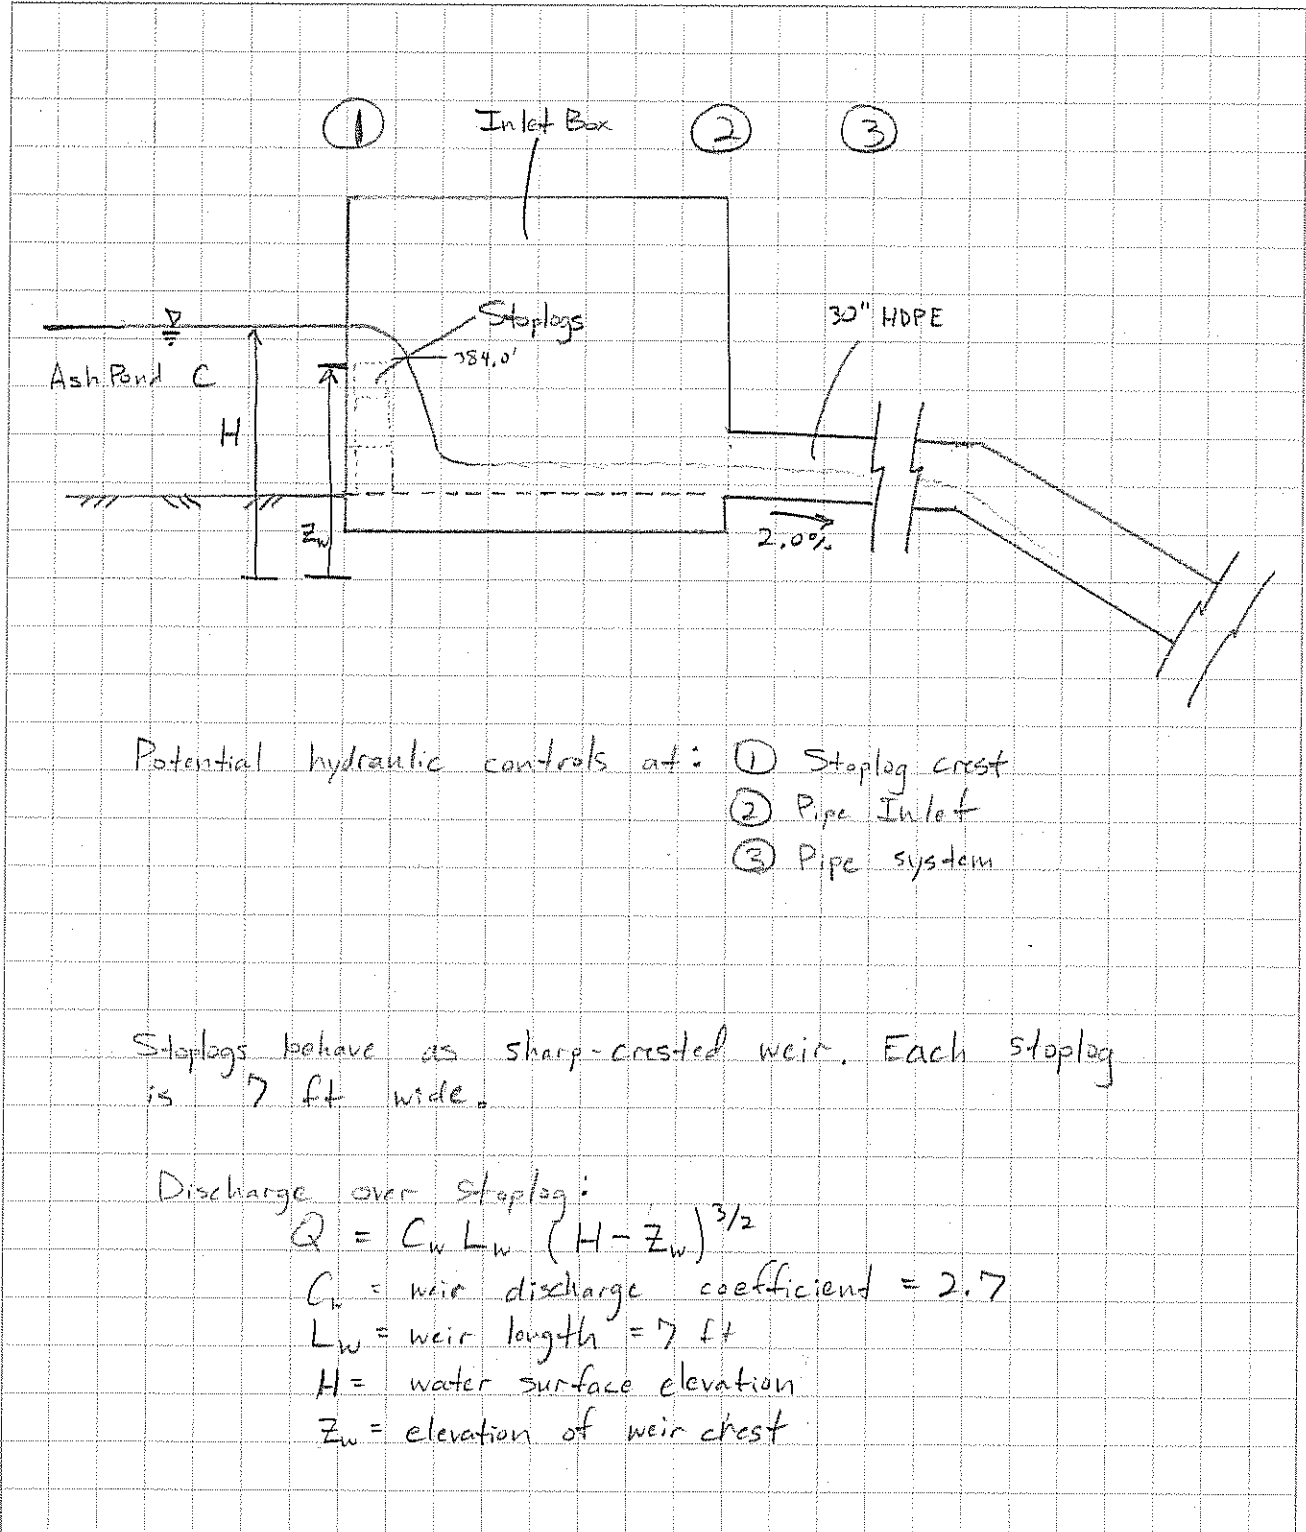 ① Inlet Box ② ③
Stoplogs
30" HDPE
384.0'
Ash Pond C
H
Zw
2.0%
Potential hydraulic controls at: ① Stoplog crest
② Pipe Inlet
③ Pipe system
Stoplogs behave as sharp-crested weir. Each stoplog
is 7 ft wide.
Discharge over stoplog:
Q = Cw Lw (H-Zw)^3/2
Cw = weir discharge coefficient = 2.7
Lw = weir length = 7 ft
H = water surface elevation
Zw = elevation of weir crest